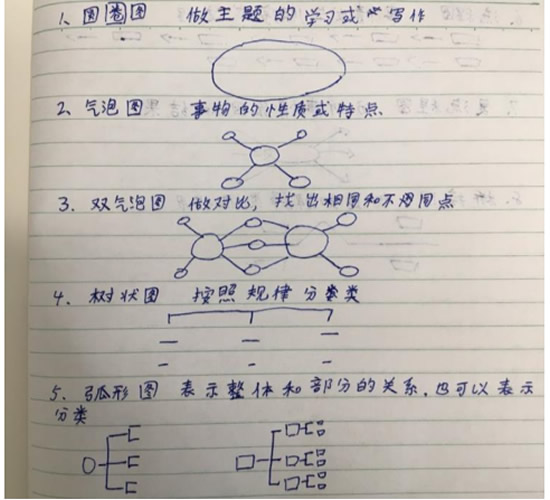 1、圆圈图 做主题的学习或写作
2、气泡图 事物的性质或特点
3. 双气泡图 做对比，找出相同和不同点
4. 树状图 按照规律分类
5. 弧形图 表示整体和部分的关系，也可以表示
分类